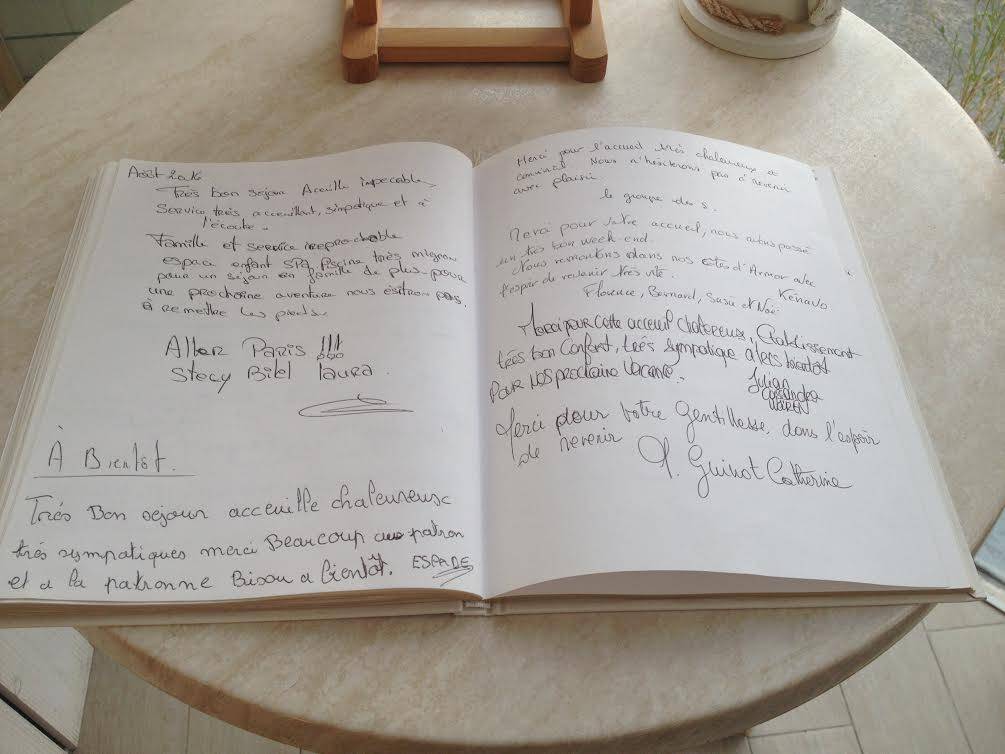 Août 2016
Très bon sejour Acceille impecable,
Service très acceuillant, simpatique et à
l'écoute.
Famille et service reprochable
espace enfant SPA Piscine très mignon
pour un séjour en famille de plus pour
une prochaine aventure nous ésitron pas,
à remettre les pieds.
Aller Paris !!!
Stecy Bilel laura.
À Bientôt.
Très Bon sejour acceuille chaleureuse
très sympatiques merci Beaucoup au patron
et a la patronne Bisou a bientôt. ESPADE
Merci pour l'accueil très chaleureux et
convivial Nous n'hésiterons pas à revenir
avec plaisir
le groupe des s.
Merci pour votre accueil, nous avons passé
un très bon week-end.
Nous remontons dans nos côtes d'Armor avec
l'espoir de revenir très vite. Kenavo
Florence, Bernard, Susie et Noé
Merci pour cette acceuil chaleureuse, Etablissement
très bon Confort, très sympatique alers bientôt
Pour nos prochaine Vacance.
Julian
Cassandra
Merci pour votre Gentillesse, dans l'espoir
de revenir
Guinot Catherine